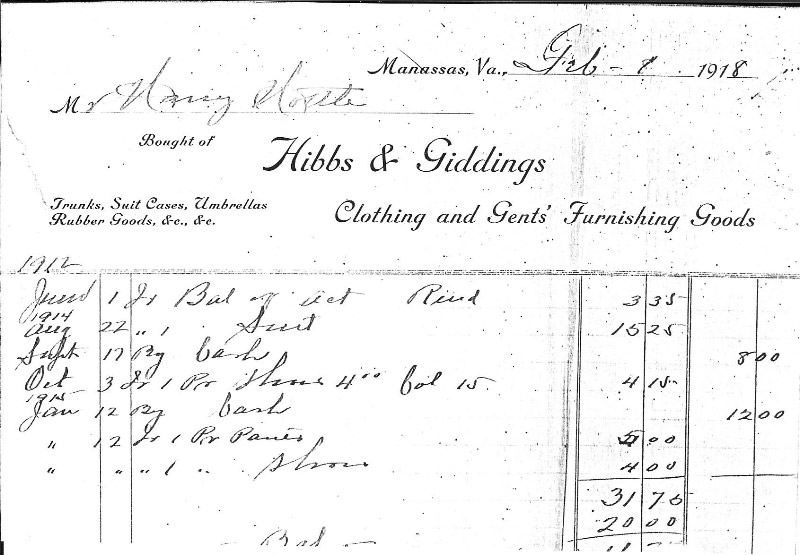 Manassas, Va., Feb - 1 1918
Mr Harry
Bought of
Hibbs & Giddings
Trunks, Suit Cases, Umbrellas
Rubber Goods, &c., &c.
Clothing and Gents' Furnishing Goods
1912
June 1 To Bal of act Rend 3 35
1914
Aug 22 " 1 Suit 15 25
Sept 17 By Cash 8 00
Oct 3 To 1 Pr Shoes 4 00 Col 15 4 15
1915
Jan 12 By Cash 12 00
" 12 To 1 Pr Pants 5 00
" " " 1 " Shoes 4 00
31 75
20 00
Bal -